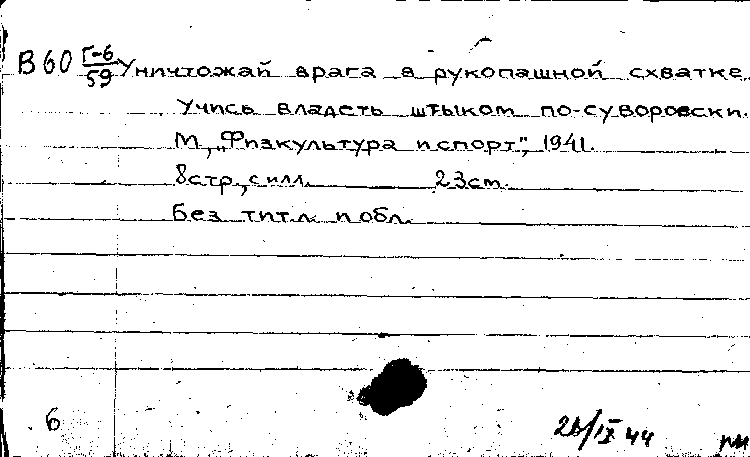 В60 Г-6/59 Уничтожай врага в рукопашной схватке.
Учись владеть штыком по-суворовски.
М., „Физкультура и спорт", 1941.
8стр., с илл. 23см.
Без титл. и обл.
6
/IX 44